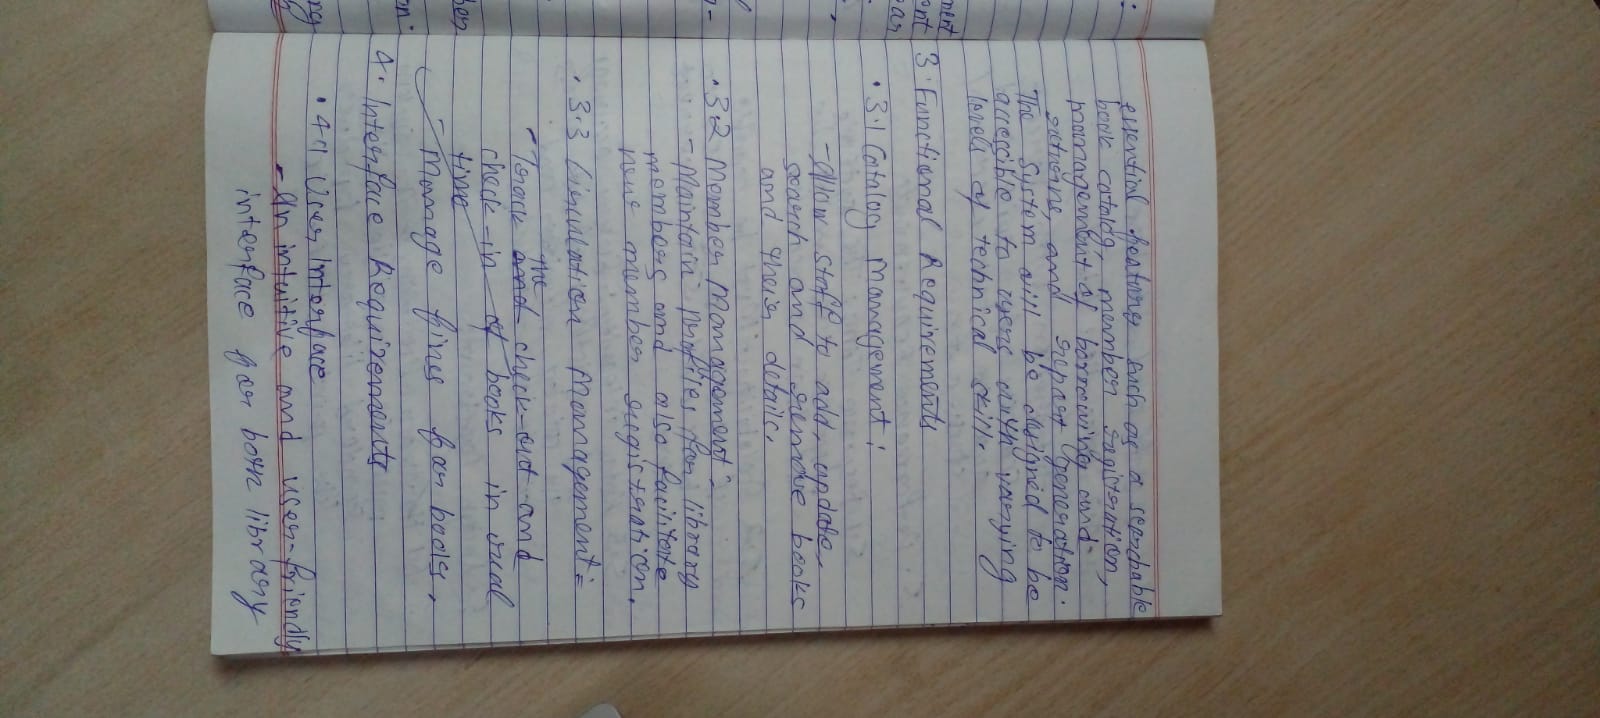 essential features such as a searchable
book catalog, member registration,
management of borrowing and
returns, and report generation.
The System will be designed to be
accessible to users with varying
levels of technical skill.
3. Functional Requirements
• 3.1 Catalog Management:
- Allow staff to add, update,
search and remove books
and their details.
• 3.2 Member Management:
- Maintain profiles for library
members and also facilitate
new member registration.
• 3.3 Circulation Management:
- Track the check-out and
check-in of books in real
time
- Manage fines for books.
4. Interface Requirements
• 4.1 User Interface
- An intuitive and user-friendly
interface for both library